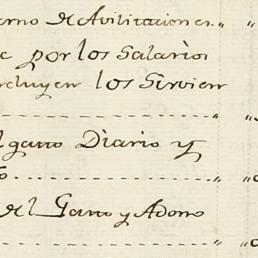 erno de Avilitaciones
e por los Salarios
cluyen los Sirvien
l gasto Diario y
o
del Gasto y Adorno